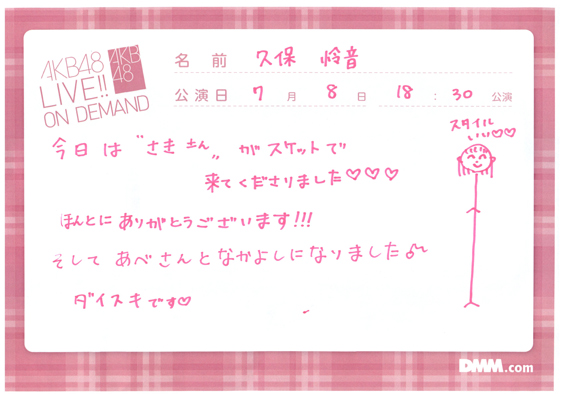 AKB48
LIVE!!
ON DEMAND
AKB
48
名前 久保 怜音
公演日 7月 8日 18:30 公演
スタイル
いい♡♡
今日は“さきさん„がスケットで
来てくださりました♡♡♡
ほんとにありがとうございます!!!
そして あべさんとなかよしになりました♫
ダイスキです♡
DMM.com